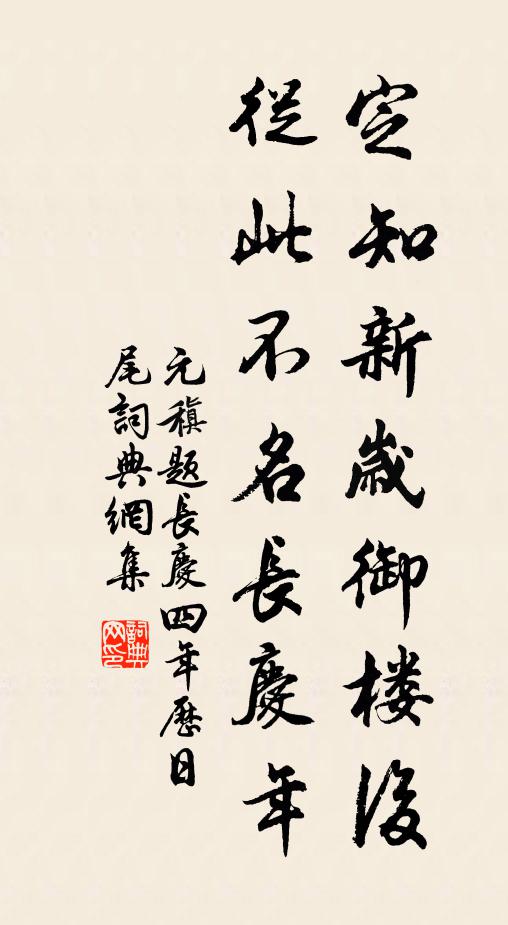 定知新歲御楼後
從此不名長慶年
元稹題長慶四年歷日
尾詞典網集
詞典
网印